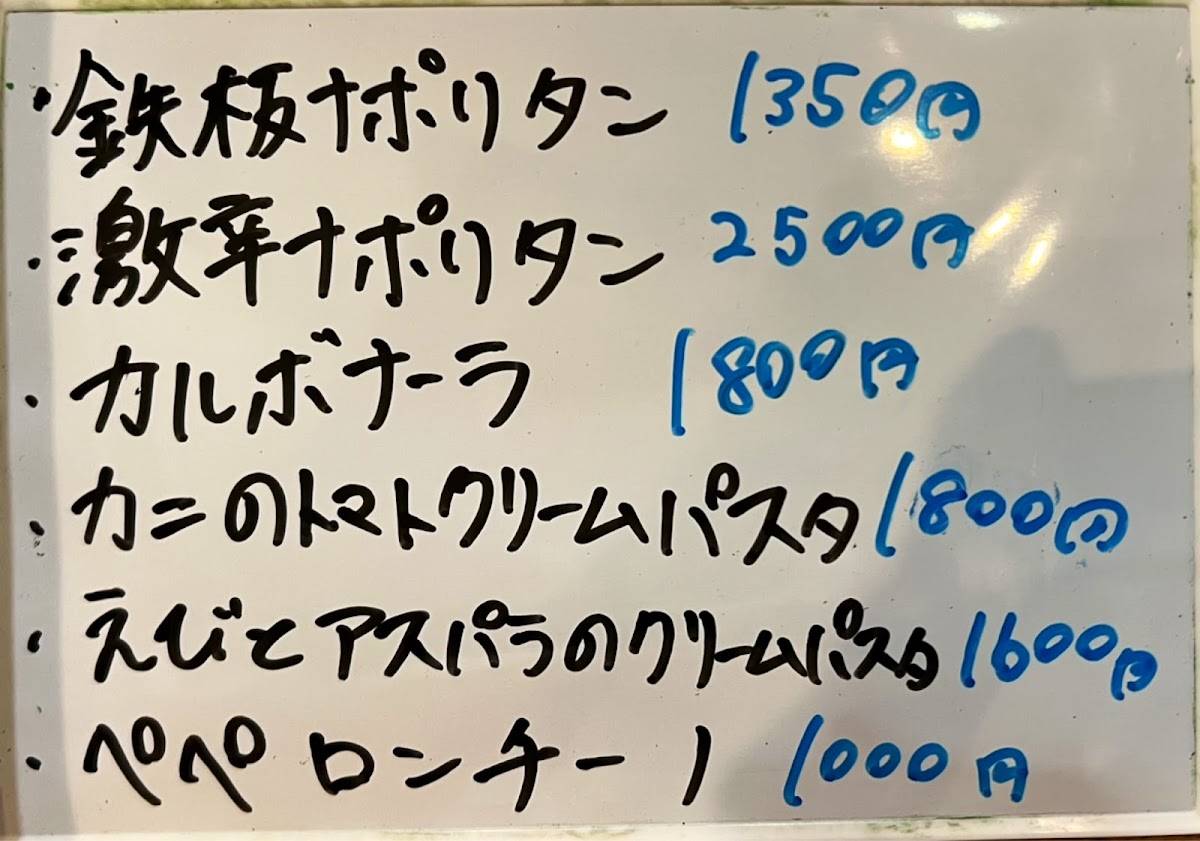 ・鉄板ナポリタン 1350円
・激辛ナポリタン 2500円
・カルボナーラ 1800円
・カニのトマトクリームパスタ 1800円
・えびとアスパラのクリームパスタ 1600円
・ペペロンチーノ 1000円